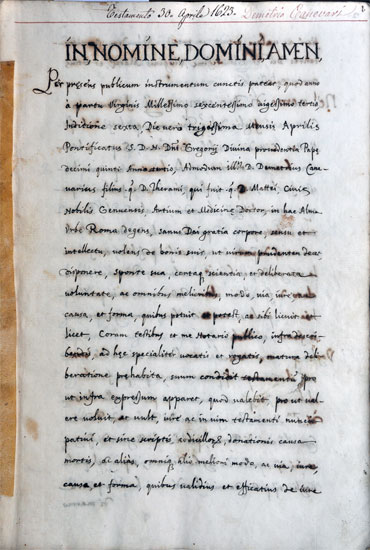 Testamento 30. Aprile 1623. Demetrio Canevari
IN NOMINE DOMINI AMEN,
Per presens publicum instrumentum cunctis pateat, quod anno
a partu Virginis Millessimo sexcentessimo vigessimo tertio
Inditione sexta, Die vero trigessima Mensis Aprilis
Pontificatus S. D. N. Dni Gregorij Divina providentia Pape
decimi quinti Anno tertio, Admodum Illris D. Demetrius Cane-
varius filius q. D. Therami, qui fuit q. D. Mattei, Civis
Nobilis Genuensis, Artium et Medicine Doctor, in hac Alma
Urbe Roma degens, sanus Dei gratia corpore, sensu et
intellectu, volens de bonis suis, ut virum prudentem decet
disponere, sponte sua, certaq. scientia, et deliberata
voluntate, ac omnibus melioribus, modo, via, iure
causa, et forma, quibus potuit et potest, ac sibi licuit et
licet, Coram testibus et me Notario publico, infradescri-
bendis, ad hec specialiter vocatis et rogatis, matura deli-
beratione prehabita, suum condidit testamentum prout
ut infra expressum apparet, quod valebit prout va-
lere voluit, ac vult, iure ac in vim testamenti nuncu-
pativi, et sine scriptis, codicillor, donationis causa
mortis, ac alias, omniq. alio meliori modo, ac via, iure,
causa et forma, quibus validius et efficatius de iure